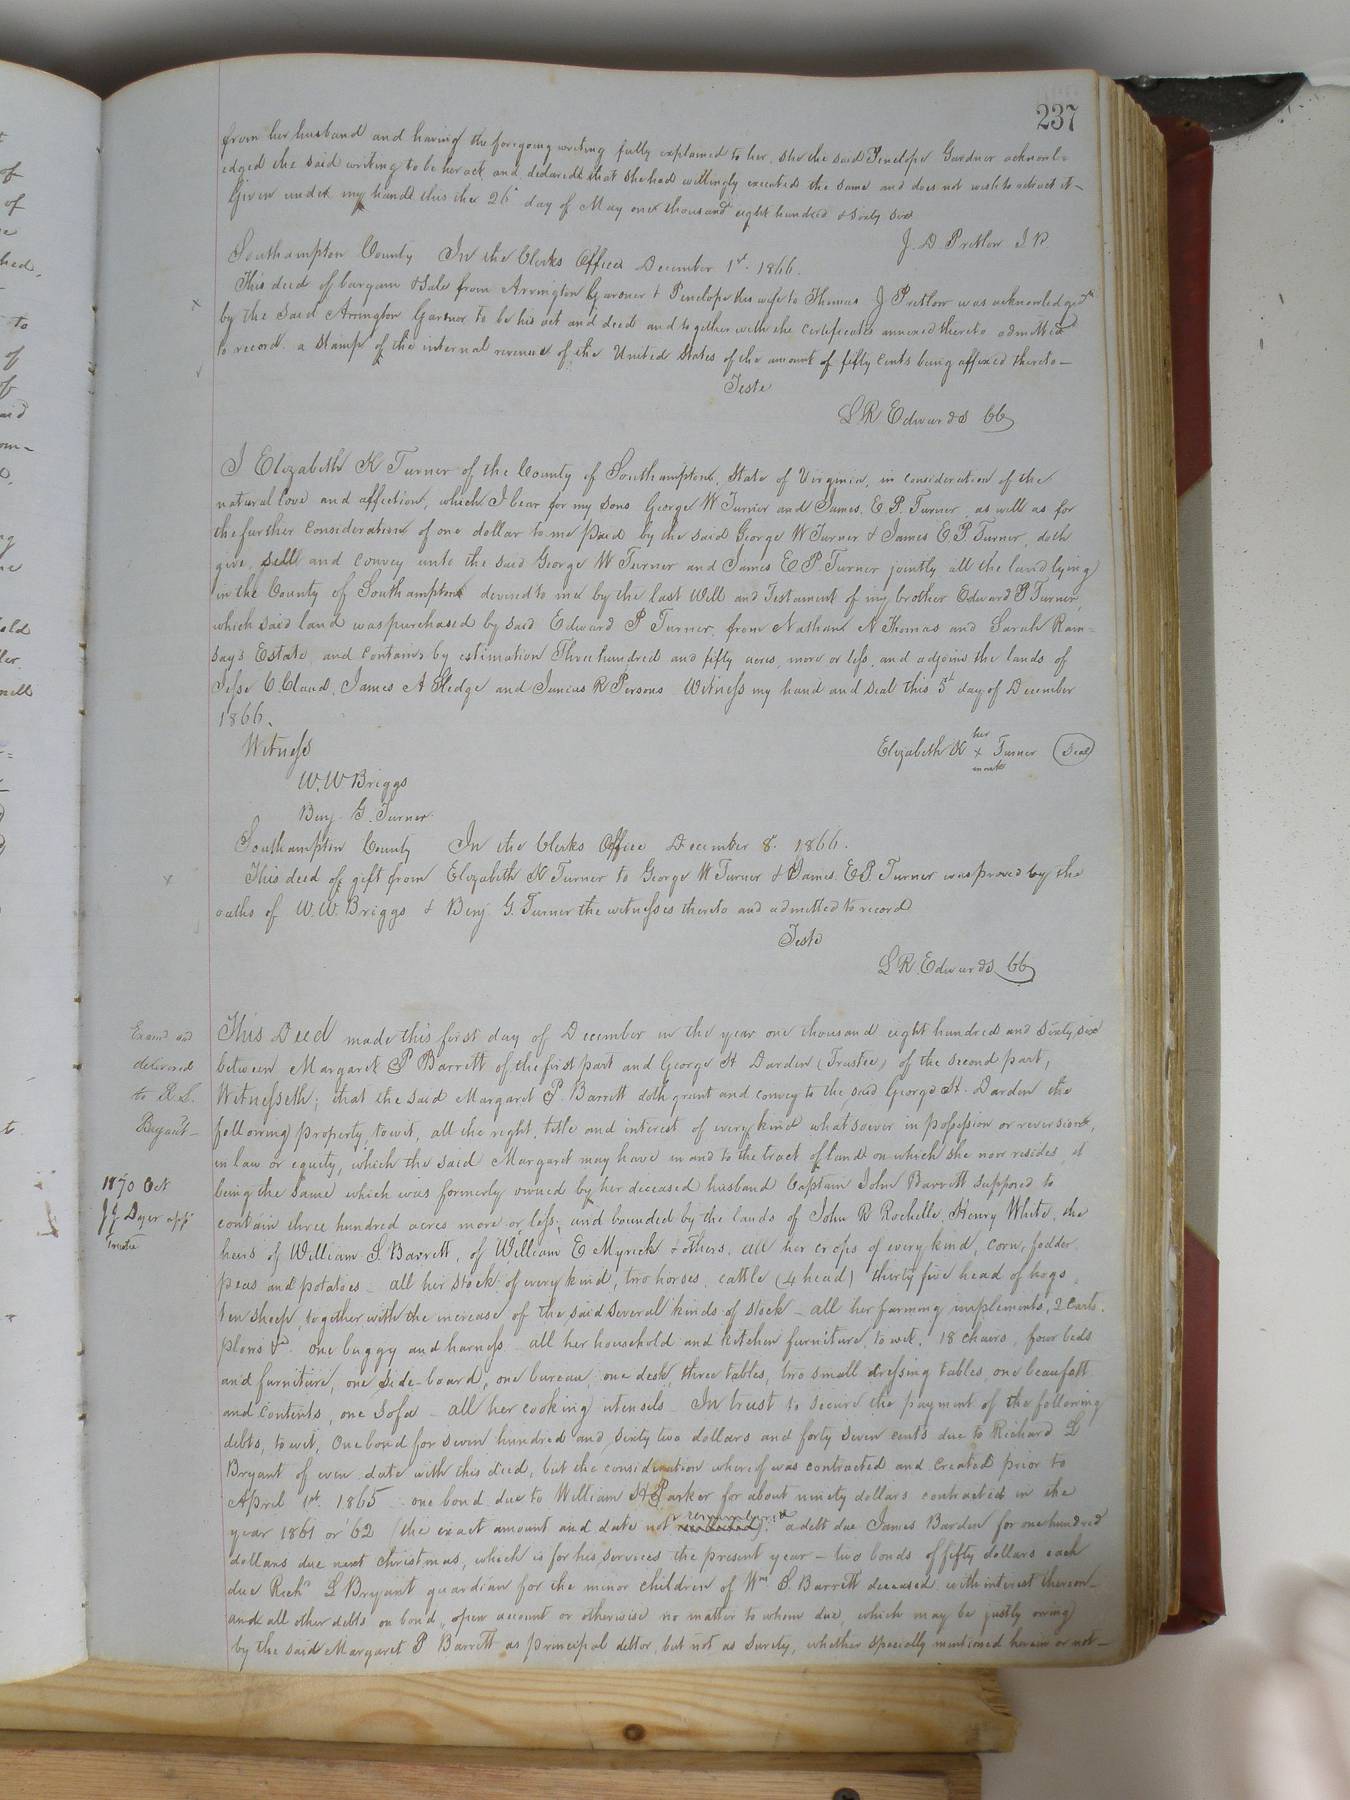 237
from her husband and having the foregoing writing fully explained to her, she the said Penelope Gardner acknowl=
edged the said writing to be her act and declared that she had willingly executed the same and does not wish to retract it—
Given under my hand this the 26th day of May one thousand eight hundred & sixty six
J. D. Pretlow J. P.
Southampton County In the Clerks Office December 1st. 1866.
This deed of bargain & Sale from Arrington Gardner & Penelope his wife to Thomas J Pretlow was acknowledged
by the said Arrington Garner to be his act and deed and together with the certificate annexed thereto admitted
to record. a Stamp of the internal revenue of the United States of the amount of fifty cents being affixed thereto—
Teste
L R Edwards CC
I Elizabeth K Turner of the County of Southampton, State of Virginia, in consideration of the
natural love and affection, which I bear for my sons George W Turner and James. E. P. Turner, as well as for
the further consideration of one dollar to me paid by the said George W Turner & James E P Turner, doth
give, sell and convey unto the said George W Turner and James E P Turner jointly all the land lying
in the County of Southampton devised to me by the last Will and Testament of my brother Edward P Turner,
which said land was purchased by said Edward P Turner, from Nathan N Thomas and Sarah Ram=
says Estate, and contains by estimation Three hundred and fifty acres, more or less, and adjoins the lands of
Jesse C Claud, James A Sledge and Junius R Persons. Witness my hand and seal this 5th day of December
1866.
Witness
Elizabeth K her x mark Turner (Seal)
W. W Briggs
Benj. G. Turner
Southampton County In the Clerks Office December 8. 1866.
This deed of gift from Elizabeth K Turner to George W Turner & James. E P. Turner was proved by the
oaths of W. W. Briggs & Benj G. Turner the witnesses thereto and admitted to record
Teste
L R. Edwards CC
Exam'd and
delivered
to R. L.
Bryant—
1870 Oct
J J Dyer app
Trustee
This Deed made this first day of December in the year one thousand eight hundred and sixty six
between Margaret P Barrett of the first part and George H Darden (Trustee) of the second part,
Witnesseth; that the said Margaret P. Barrett doth grant and convey to the said George H. Darden the
following property, to wit, all the right, title and interest of every kind whatsoever in possession or reversion,
in law or equity, which the said Margaret may have in and to the tract of land on which she now resides, it
being the same which was formerly owned by her deceased husband Captain John Barrett supposed to
contain three hundred acres more or less, and bounded by the lands of John R Rochelle, Henry White, the
heirs of William S. Barrett, of William E Myrick & others. all her crops of every kind, corn, fodder
peas and potatoes— all her stock of every kind, two horses, cattle (4 head) thirty five head of hogs,
ten sheep, together with the increase of the said several kinds of stock — all her farming implements, 2 carts,
plows &c. one buggy and harness — all her household and kitchen furniture, to wit, 18 chairs, four beds
and furniture, one side-board, one bureau, one desk, three tables, two small dressing tables, one beaufatt
and contents, one sofa — all her cooking utensils — In trust to secure the payment of the following
debts, to wit, One bond for seven hundred and sixty two dollars and forty seven cents due to Richard L
Bryant of even date with this deed, but the consideration whereof was contracted and created prior to
April 1st. 1865 — one bond due to William H Parker for about ninety dollars contracted in the
year 1861 or '62 (the exact amount and date not remembered). a debt due James Barden for one hundred
dollars due next Christmas, which is for his services the present year — two bonds of fifty dollars each
due Richd L Bryant guardian for the minor children of Wm S. Barrett deceased, with interest thereon—
and all other debts on bond, open account or otherwise no matter to whom due, which may be justly owing
by the said Margaret P Barrett as principal debtor, but not as surety, whether specially mentioned herein or not—